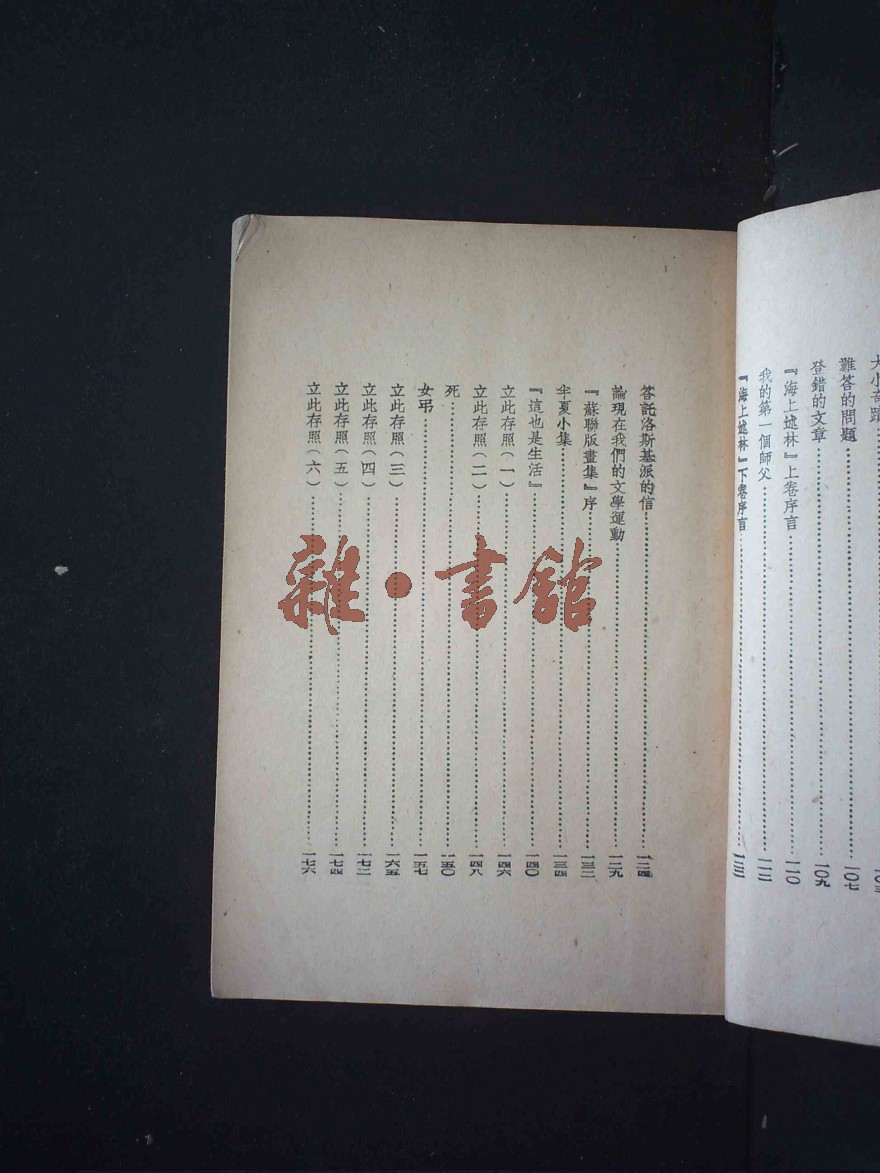 難答的問題 一〇七
登錯的文章 一〇九
『海上述林』上卷序言 一一〇
我的第一個師父 一一二
『海上述林』下卷序言
答託洛斯基派的信 一二四
論現在我們的文學運動 一二九
『蘇聯版畫集』序 一三二
半夏小集 一三四
『這也是生活』 一四〇
立此存照(一) 一四六
立此存照(二) 一四八
死 一五〇
女弔 一五七
立此存照(三) 一六五
立此存照(四) 一七二
立此存照(五) 一七四
立此存照(六) 一七六
雜·書館